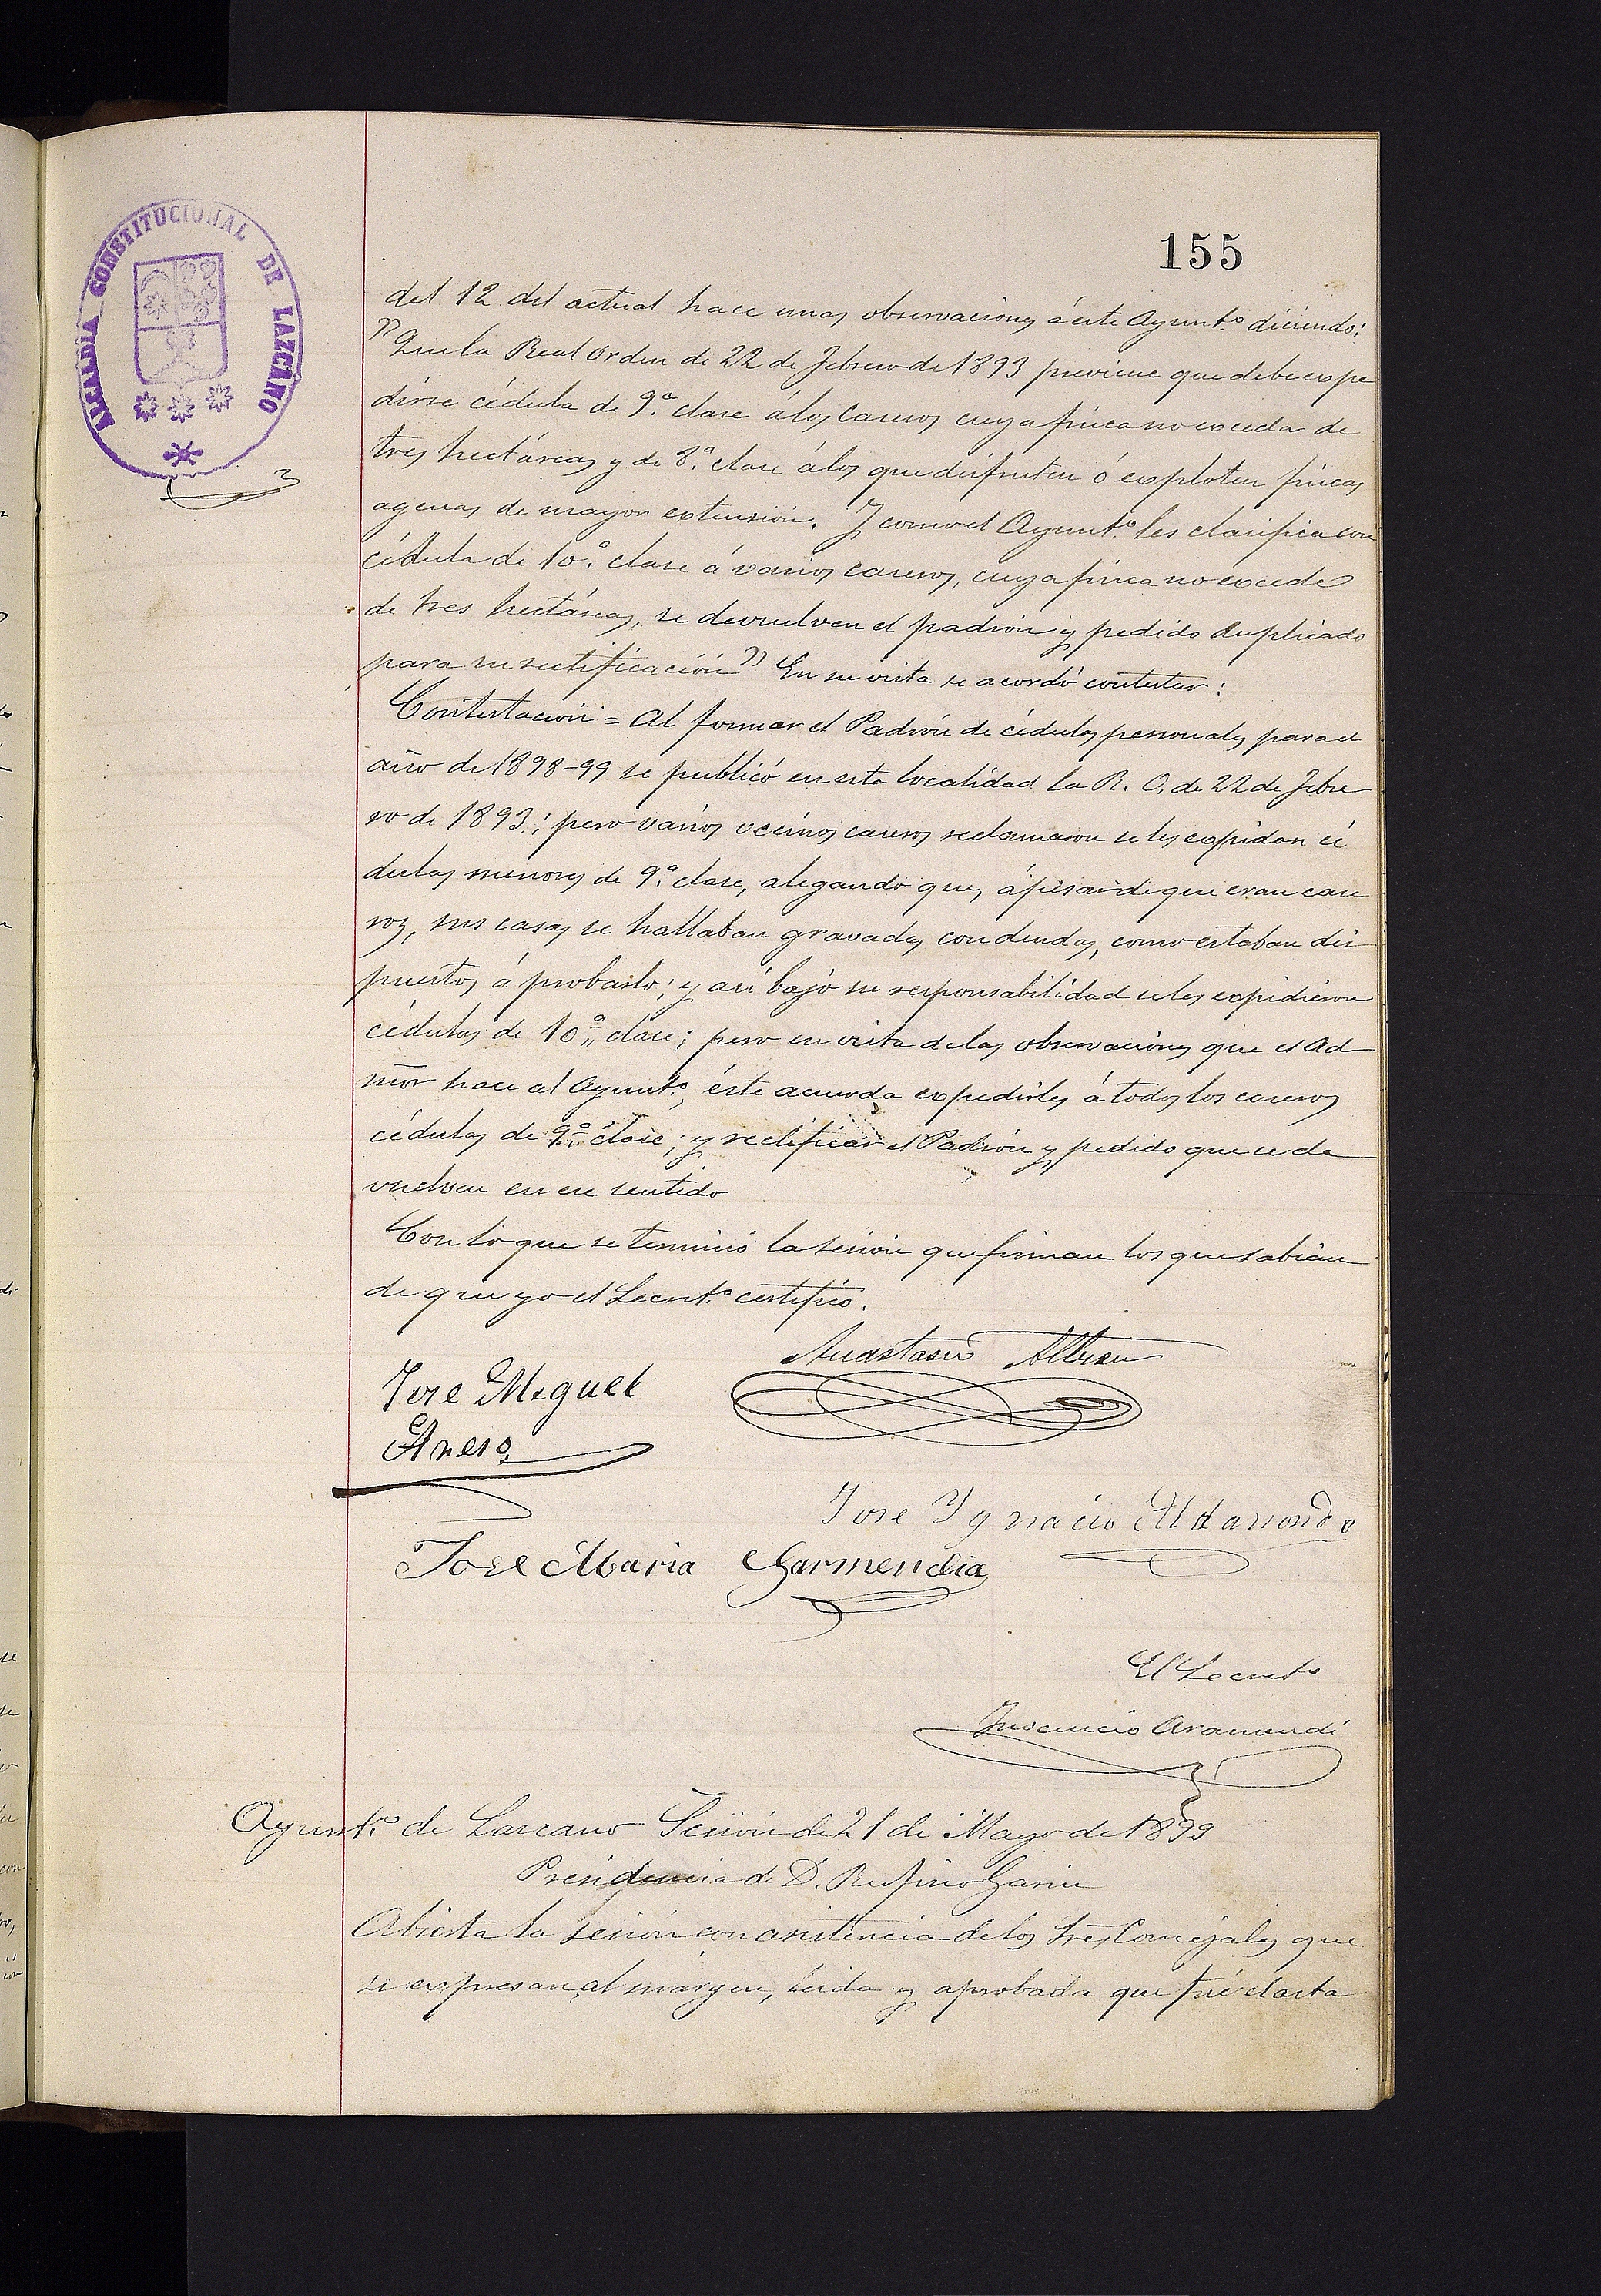 155
ALCALDIA CONSTITUCIONAL DE LAZCANO
del 12 del actual hace unas observaciones á este Ayunt.º diciendo:
"Que la Real orden de 22 de Febrero de 1893 previene que debe expe
dirse cédula de 9.ª clase á los caseros cuya finca no exceda de
tres hectáreas y de 8.ª clase á los que disfruten ó exploten fincas
agenas de mayor extensión. Y como el Ayunt.º les clasifica con
cédula de 10.ª clase á varios caseros, cuya finca no excede
de tres hectáreas, se devuelven el padrón y pedido duplicado
para su rectificación" En su vista se acordó contestar:
Contestación = Al formar el Padrón de cédulas personales para el
año de 1898-99 se publicó en esta localidad la R. O. de 22 de Febre
ro de 1893; pero varios vecinos caseros reclamaron se les expidan cé
dulas menores de 9.ª clase, alegando que, á pesar de que eran case
ros, sus casas se hallaban gravadas con deudas, como estaban dis
puestos á probarlo; y así bajo su responsabilidad se les expidieron
cédulas de 10.ª clase; pero en vista de las observaciones que el Ad
mor hace al Ayunt.º, éste acuerda expedirles á todos los caseros
cédulas de 9.ª clase; y rectificar el Padrón y pedido que se de
vuelven en ese sentido
Con lo que se terminó la sesión que firman los que sabian
de que yo el Secret.º certifico.
Anastasio Albisu
Jose Miguel
Areso
Jose Ygnacio Aldasondo
Jose Maria Garmendia
El Secret.º
Inocencio Aramendi
Ayunt.º de Lazcano Sesión de 21 de Mayo de 1899
Presidencia de D. Rufino Garin
Abierta la sesión con asistencia de los Sres Concejales que
se expresan al margen, leida y aprobada que fué el acta